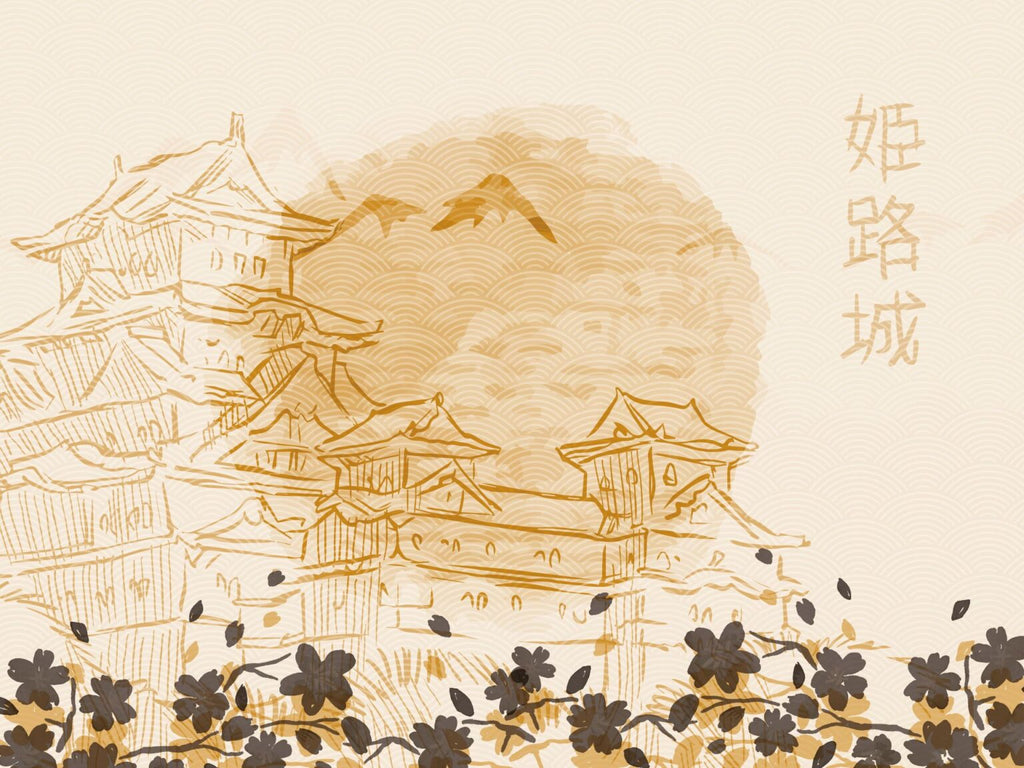 姫路城